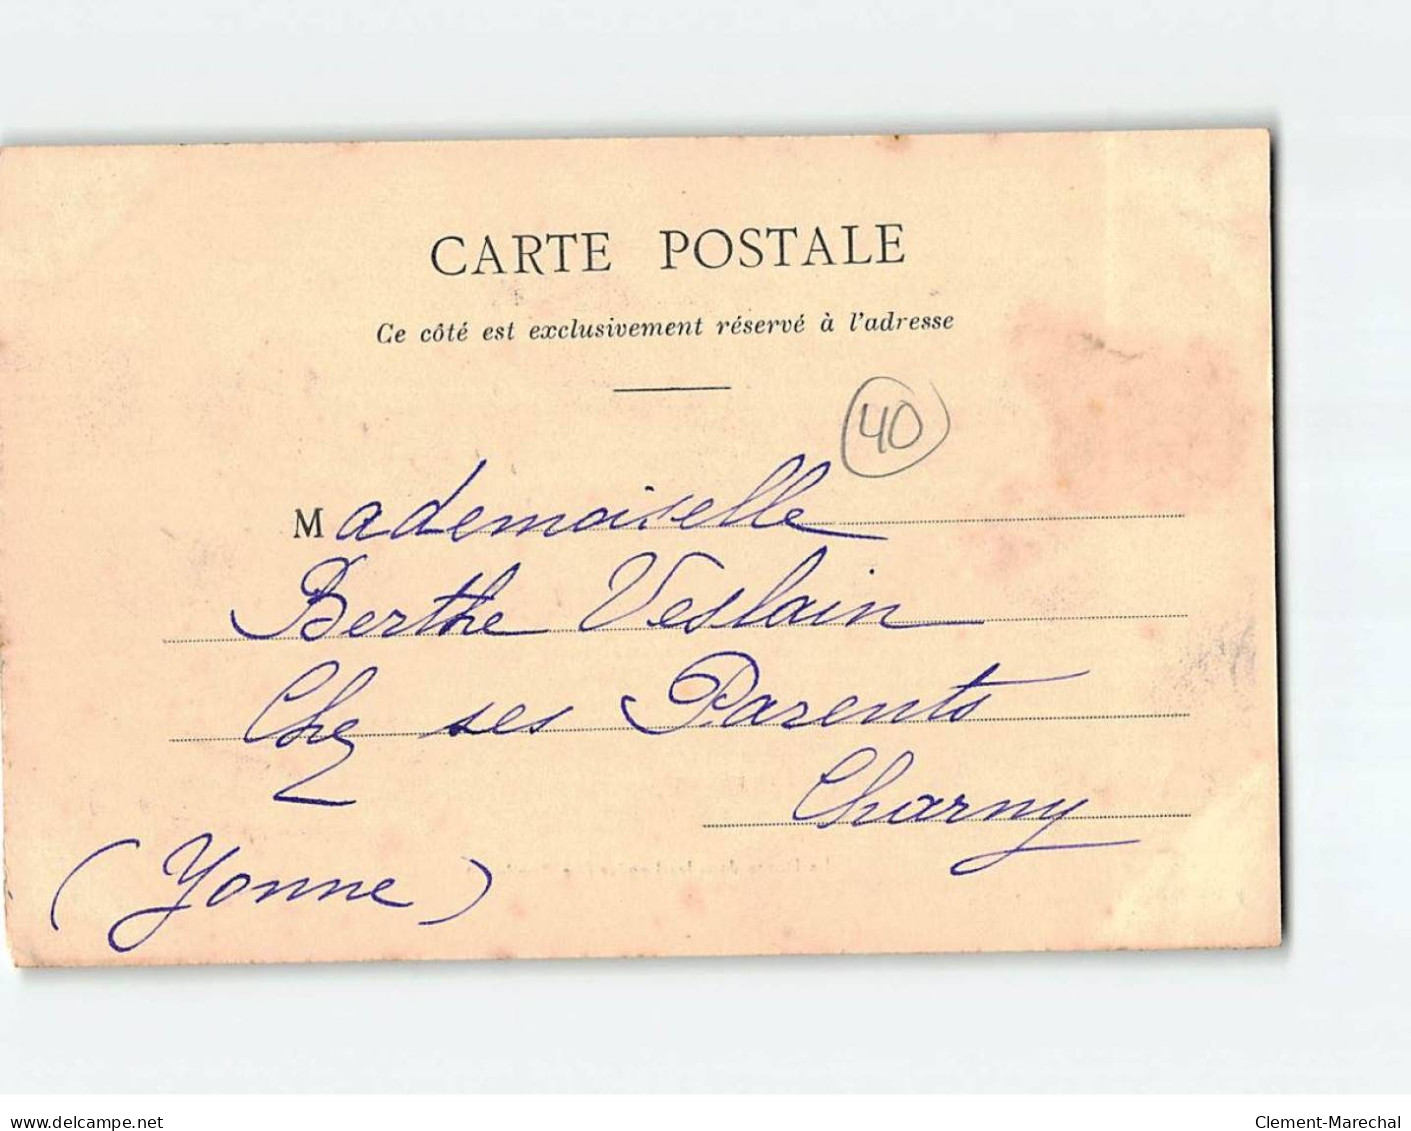 CARTE POSTALE
Ce côté est exclusivement réservé à l'adresse
40
Mademoiselle
Berthe Veslain
Chez ses Parents
Charny
(Yonne)
delcampe.net
Clement-Marechal